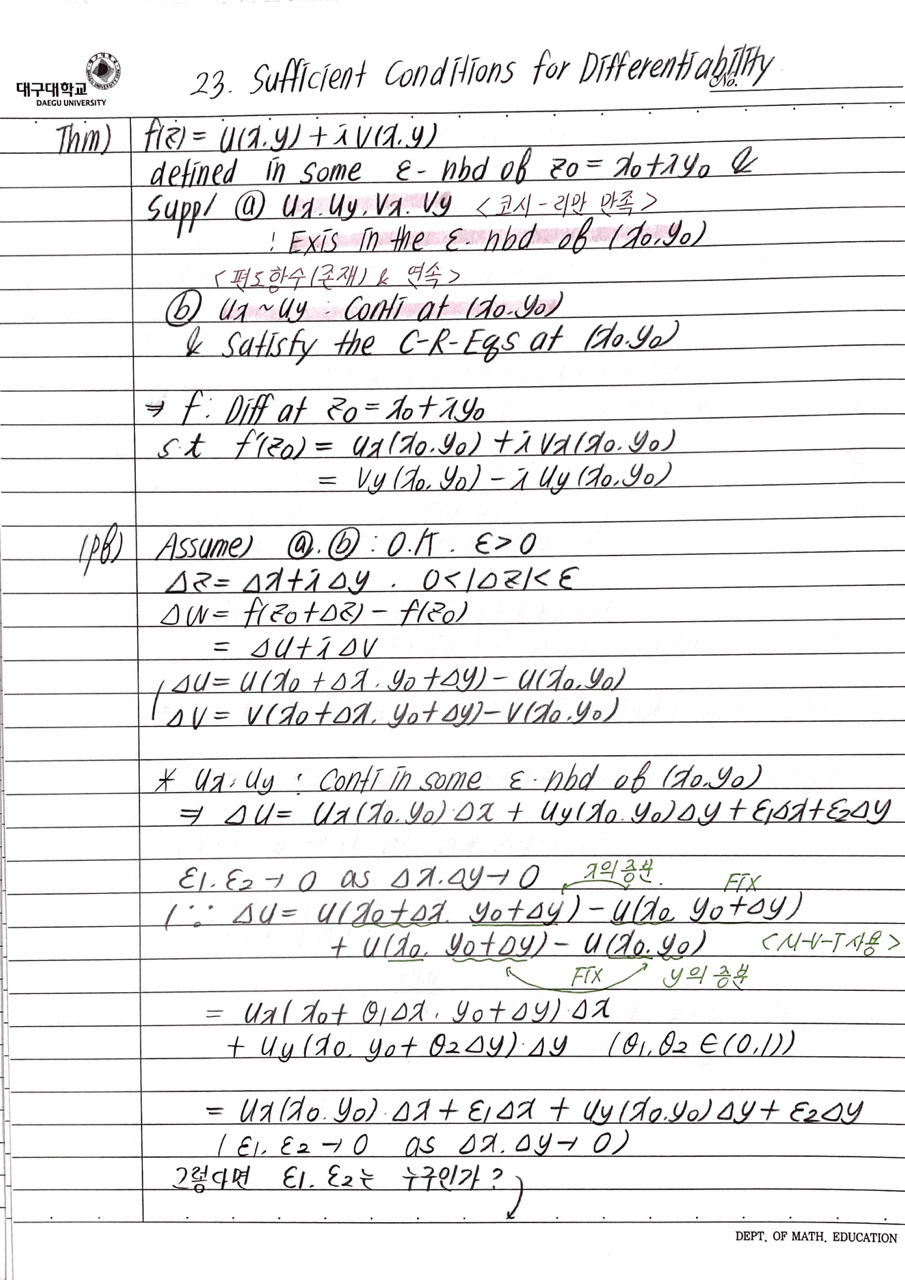 대구대학교
DAEGU UNIVERSITY
23. Sufficient Conditions for Differentiability
No.
Thm) f(z) = u(x.y) + i v(x.y)
defined in some ε-nbd of z0 = x0+iy0 &
Supp/ ⓐ ux.uy.vx.vy <코시-리만 만족>
: Exis in the ε-nbd of (x0.y0)
<편도함수(존재) & 연속>
ⓑ ux ~ uy : Conti at (x0.y0)
& Satisfy the C-R-Eqs at (x0.y0)
⇒ f : Diff at z0 = x0+iy0
s.t f'(z0) = ux(x0.y0) + i vx(x0.y0)
= vy(x0.y0) - i uy(x0.y0)
(pf) Assume) ⓐ.ⓑ : O.K . ε>0
Δz = Δx+iΔy . 0<|Δz|<ε
Δw = f(z0+Δz) - f(z0)
= Δu+iΔv
Δu = u(x0+Δx. y0+Δy) - u(x0.y0)
Δv = v(x0+Δx. y0+Δy) - v(x0.y0)
* ux.uy : Conti in some ε-nbd of (x0.y0)
⇒ Δu = ux(x0.y0)·Δx + uy(x0.y0)Δy + ε1Δx+ε2Δy
ε1.ε2 → 0 as Δx.Δy → 0 x의 증분. FIX
(∵ Δu = u(x0+Δx. y0+Δy) - u(x0. y0+Δy)
+ u(x0. y0+Δy) - u(x0.y0) <M-V-T 사용>
FIX y의 증분
= ux(x0+θ1Δx. y0+Δy)·Δx
+ uy(x0. y0+θ2Δy)·Δy (θ1.θ2 ∈ (0,1))
= ux(x0.y0)·Δx + ε1Δx + uy(x0.y0)Δy + ε2Δy
(ε1.ε2 → 0 as Δx.Δy → 0)
그렇다면 ε1.ε2는 누구인가?
DEPT. OF MATH. EDUCATION